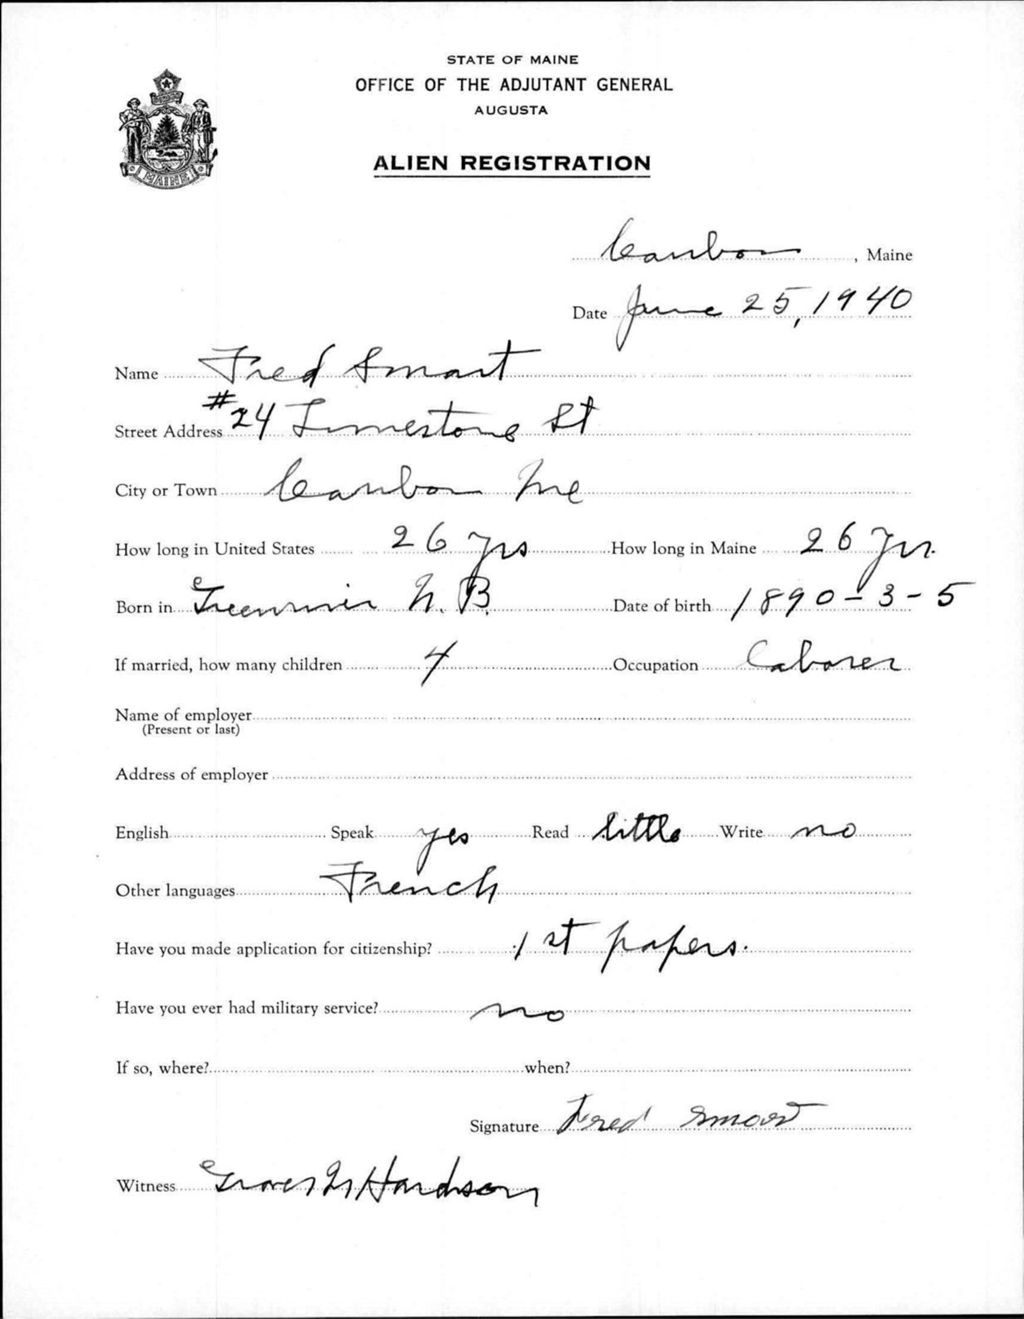 STATE OF MAINE
OFFICE OF THE ADJUTANT GENERAL
AUGUSTA
ALIEN REGISTRATION
MAINE
Caribou, Maine
Date June 25, 1940
Name Fred Smart
Street Address #24 Limestone St
City or Town Caribou Me
How long in United States 26 yrs How long in Maine 26 yrs.
Born in N.B. Date of birth 1890-3-5
If married, how many children 4 Occupation Laborer
Name of employer
(Present or last)
Address of employer
English Speak yes Read little Write no
Other languages French
Have you made application for citizenship? 1st papers.
Have you ever had military service? no
If so, where? when?
Signature Fred Smart
Witness